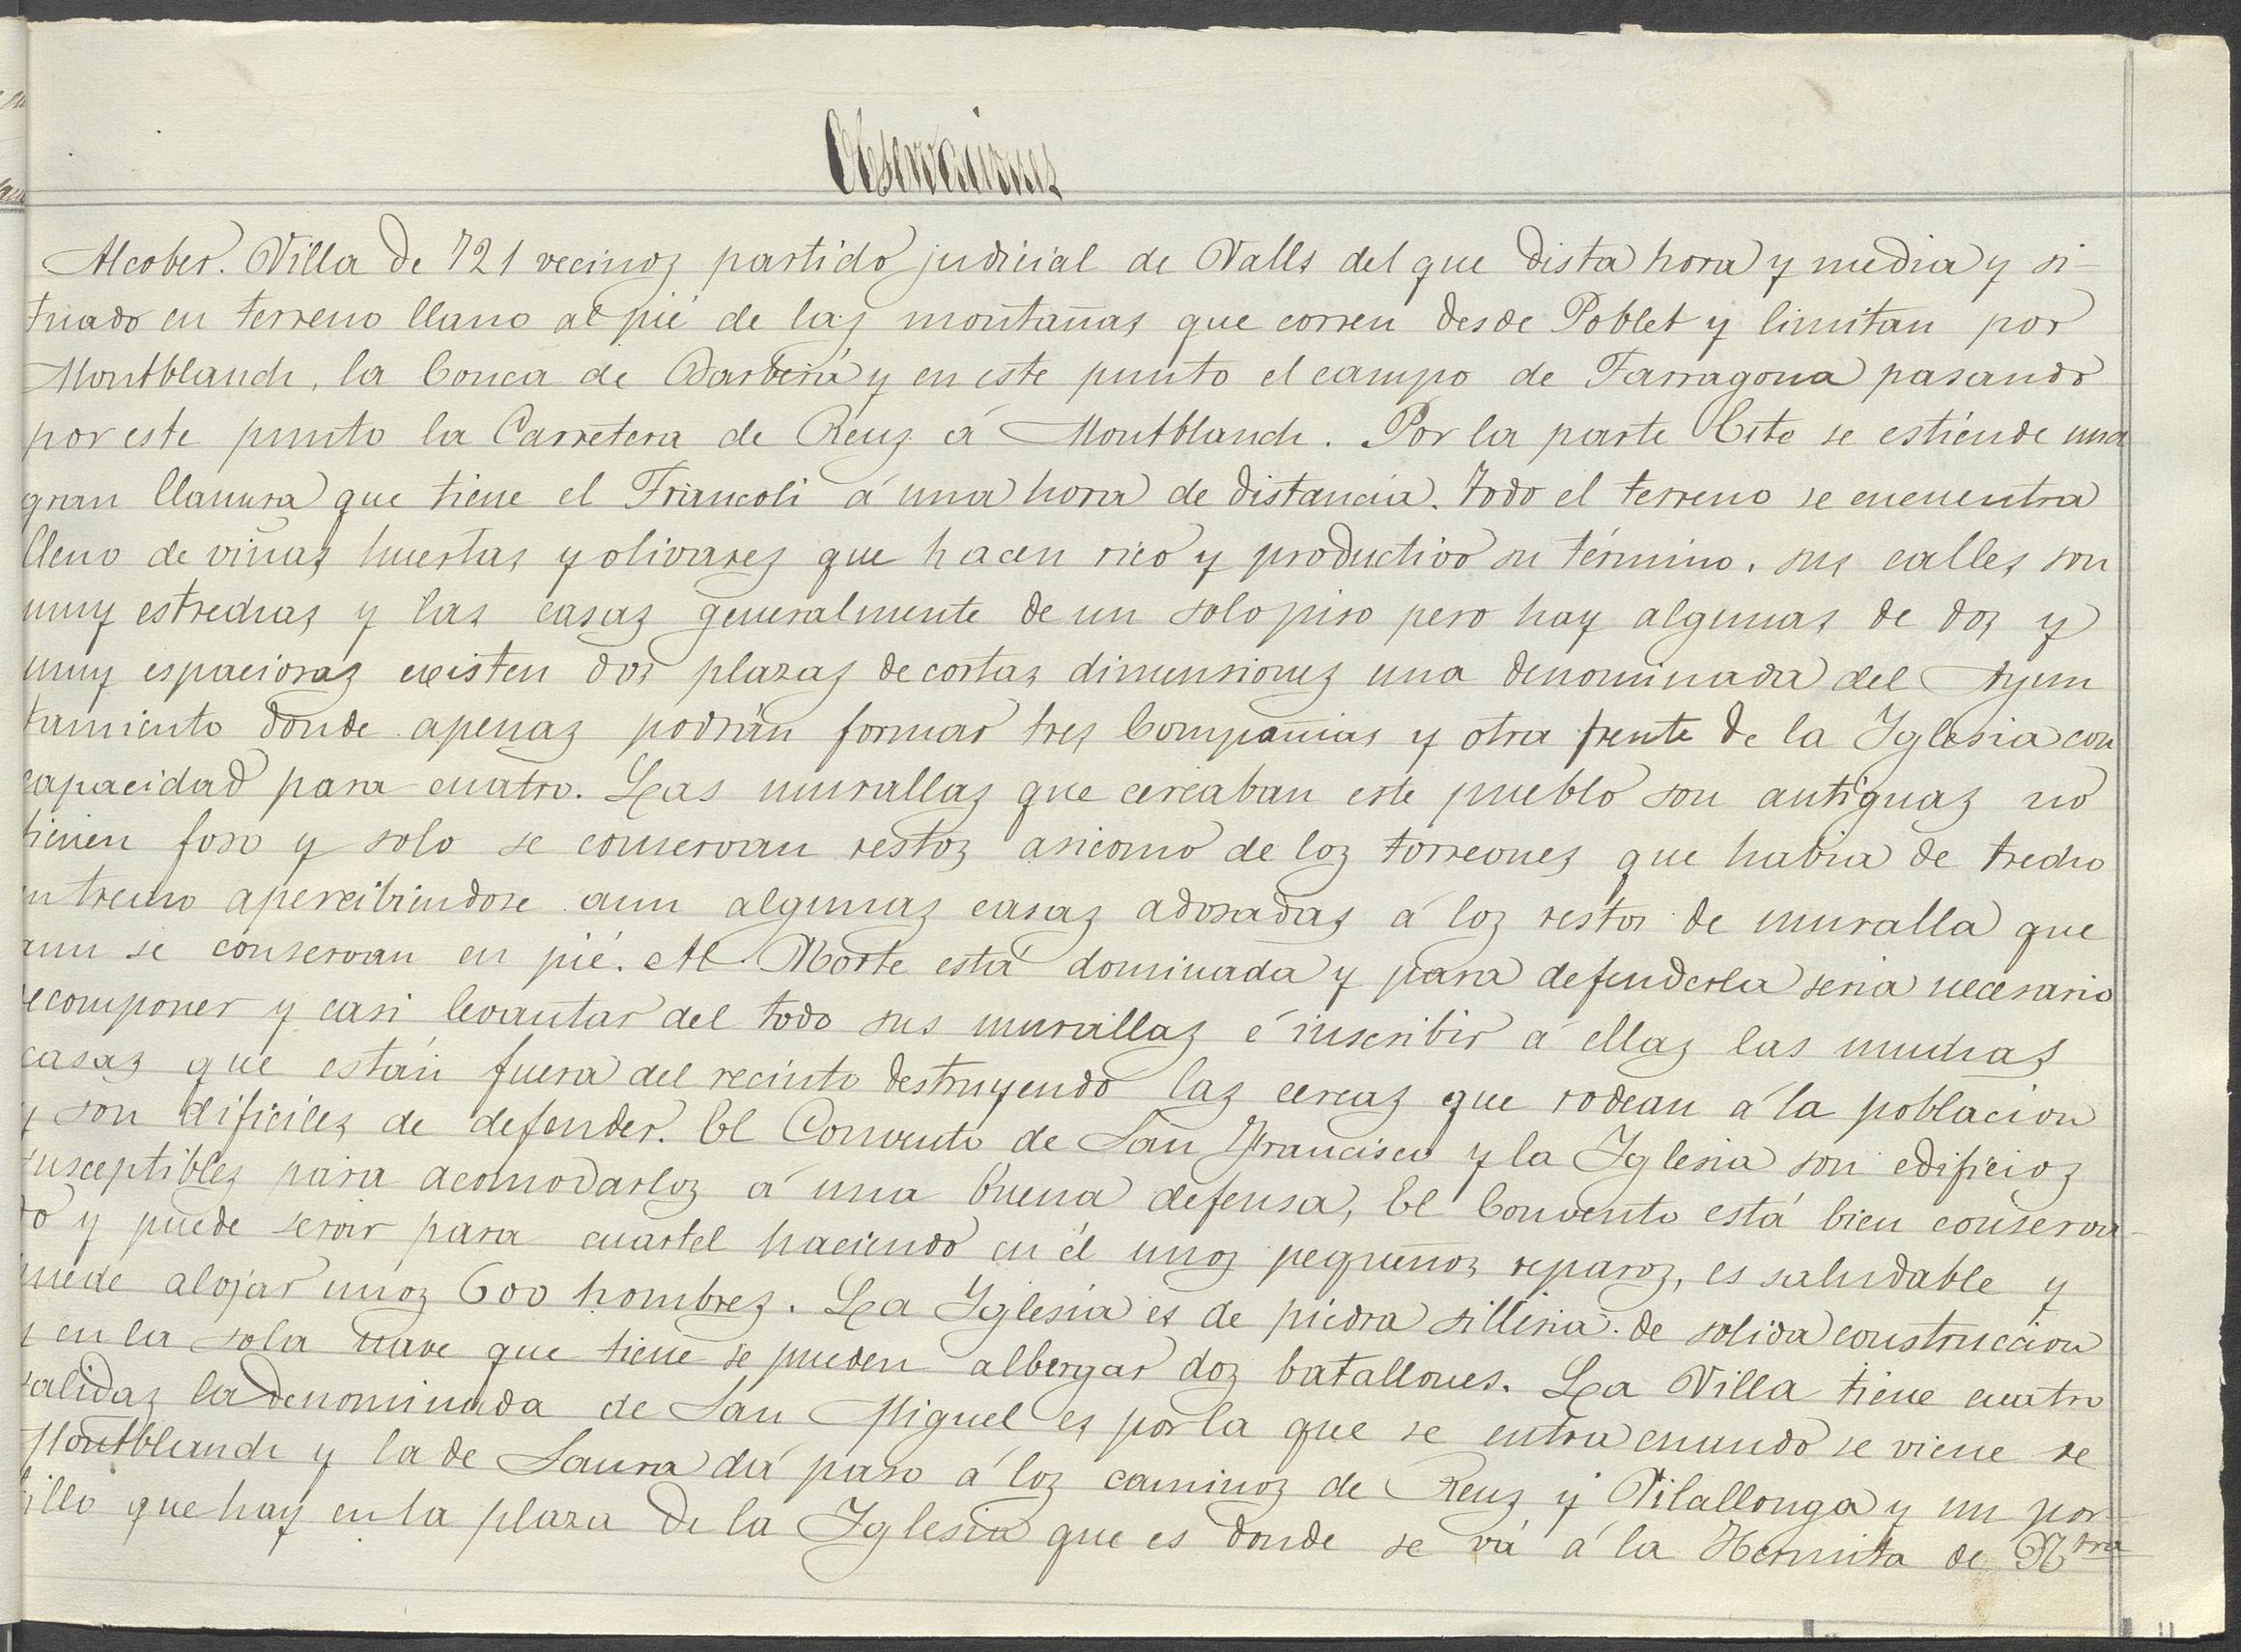 Observaciones
Alcober. Villa de 721 vecinos partido judicial de Valls del que dista hora y media y si-
tuado en terreno llano al pié de las montañas que corren desde Poblet y limitan por
Montblanch, la Conca de Barberá y en este punto el campo de Tarragona pasando
por este punto la Carretera de Reus á Montblanch. Por la parte Este se estiénde una
gran llanura que tiene el Francoli á una hora de distancia. todo el terreno se encuentra
lleno de viñas huertas y olivares que hacen rico y productivo su término. sus calles son
muy estrechas y las casas generalmente de un solo piso pero hay algunas de dos y
muy espaciosas existen dos plazas de cortas dimensiones una denominada del Ayun
tamiento donde apenas podrán formar tres Compañias y otra frente de la Yglesia con
capacidad para cuatro. Las murallas que cercaban este pueblo son antiguas no
tienen foso y solo se conservan restos asicomo de los torreones que habia de trecho
en trecho apercibiendose aun algunas casas adosadas á los restos de muralla que
aun se conservan en pié. Al Norte está dominada y para defenderla seria necesario
recomponer y casi levantar del todo sus murallas é inscribir á ellas las muchas
casas que están fuera del recinto destruyendo las cercas que rodean á la poblacion
y son dificiles de defender. El Convento de San Francisco y la Yglesia son edificios
susceptibles para acomodarlos á una buena defensa, El Convento está bien conserva-
do y puede servir para cuartel haciendo en él unos pequeños reparos, es saludable y
puede alojar unos 600 hombres. La Yglesia es de piedra silleria de solida construccion
y en la sola nave que tiene se pueden albergar dos batallones. La Villa tiene cuatro
salidas la denominada de San Miguel es por la que se entra cuando se viene de
Montblanch y la de Saura dá paso á los caminos de Reus y Vilallonga y un por-
tillo que hay en la plaza de la Yglesia que es donde se vá á la Hermita de Ntra